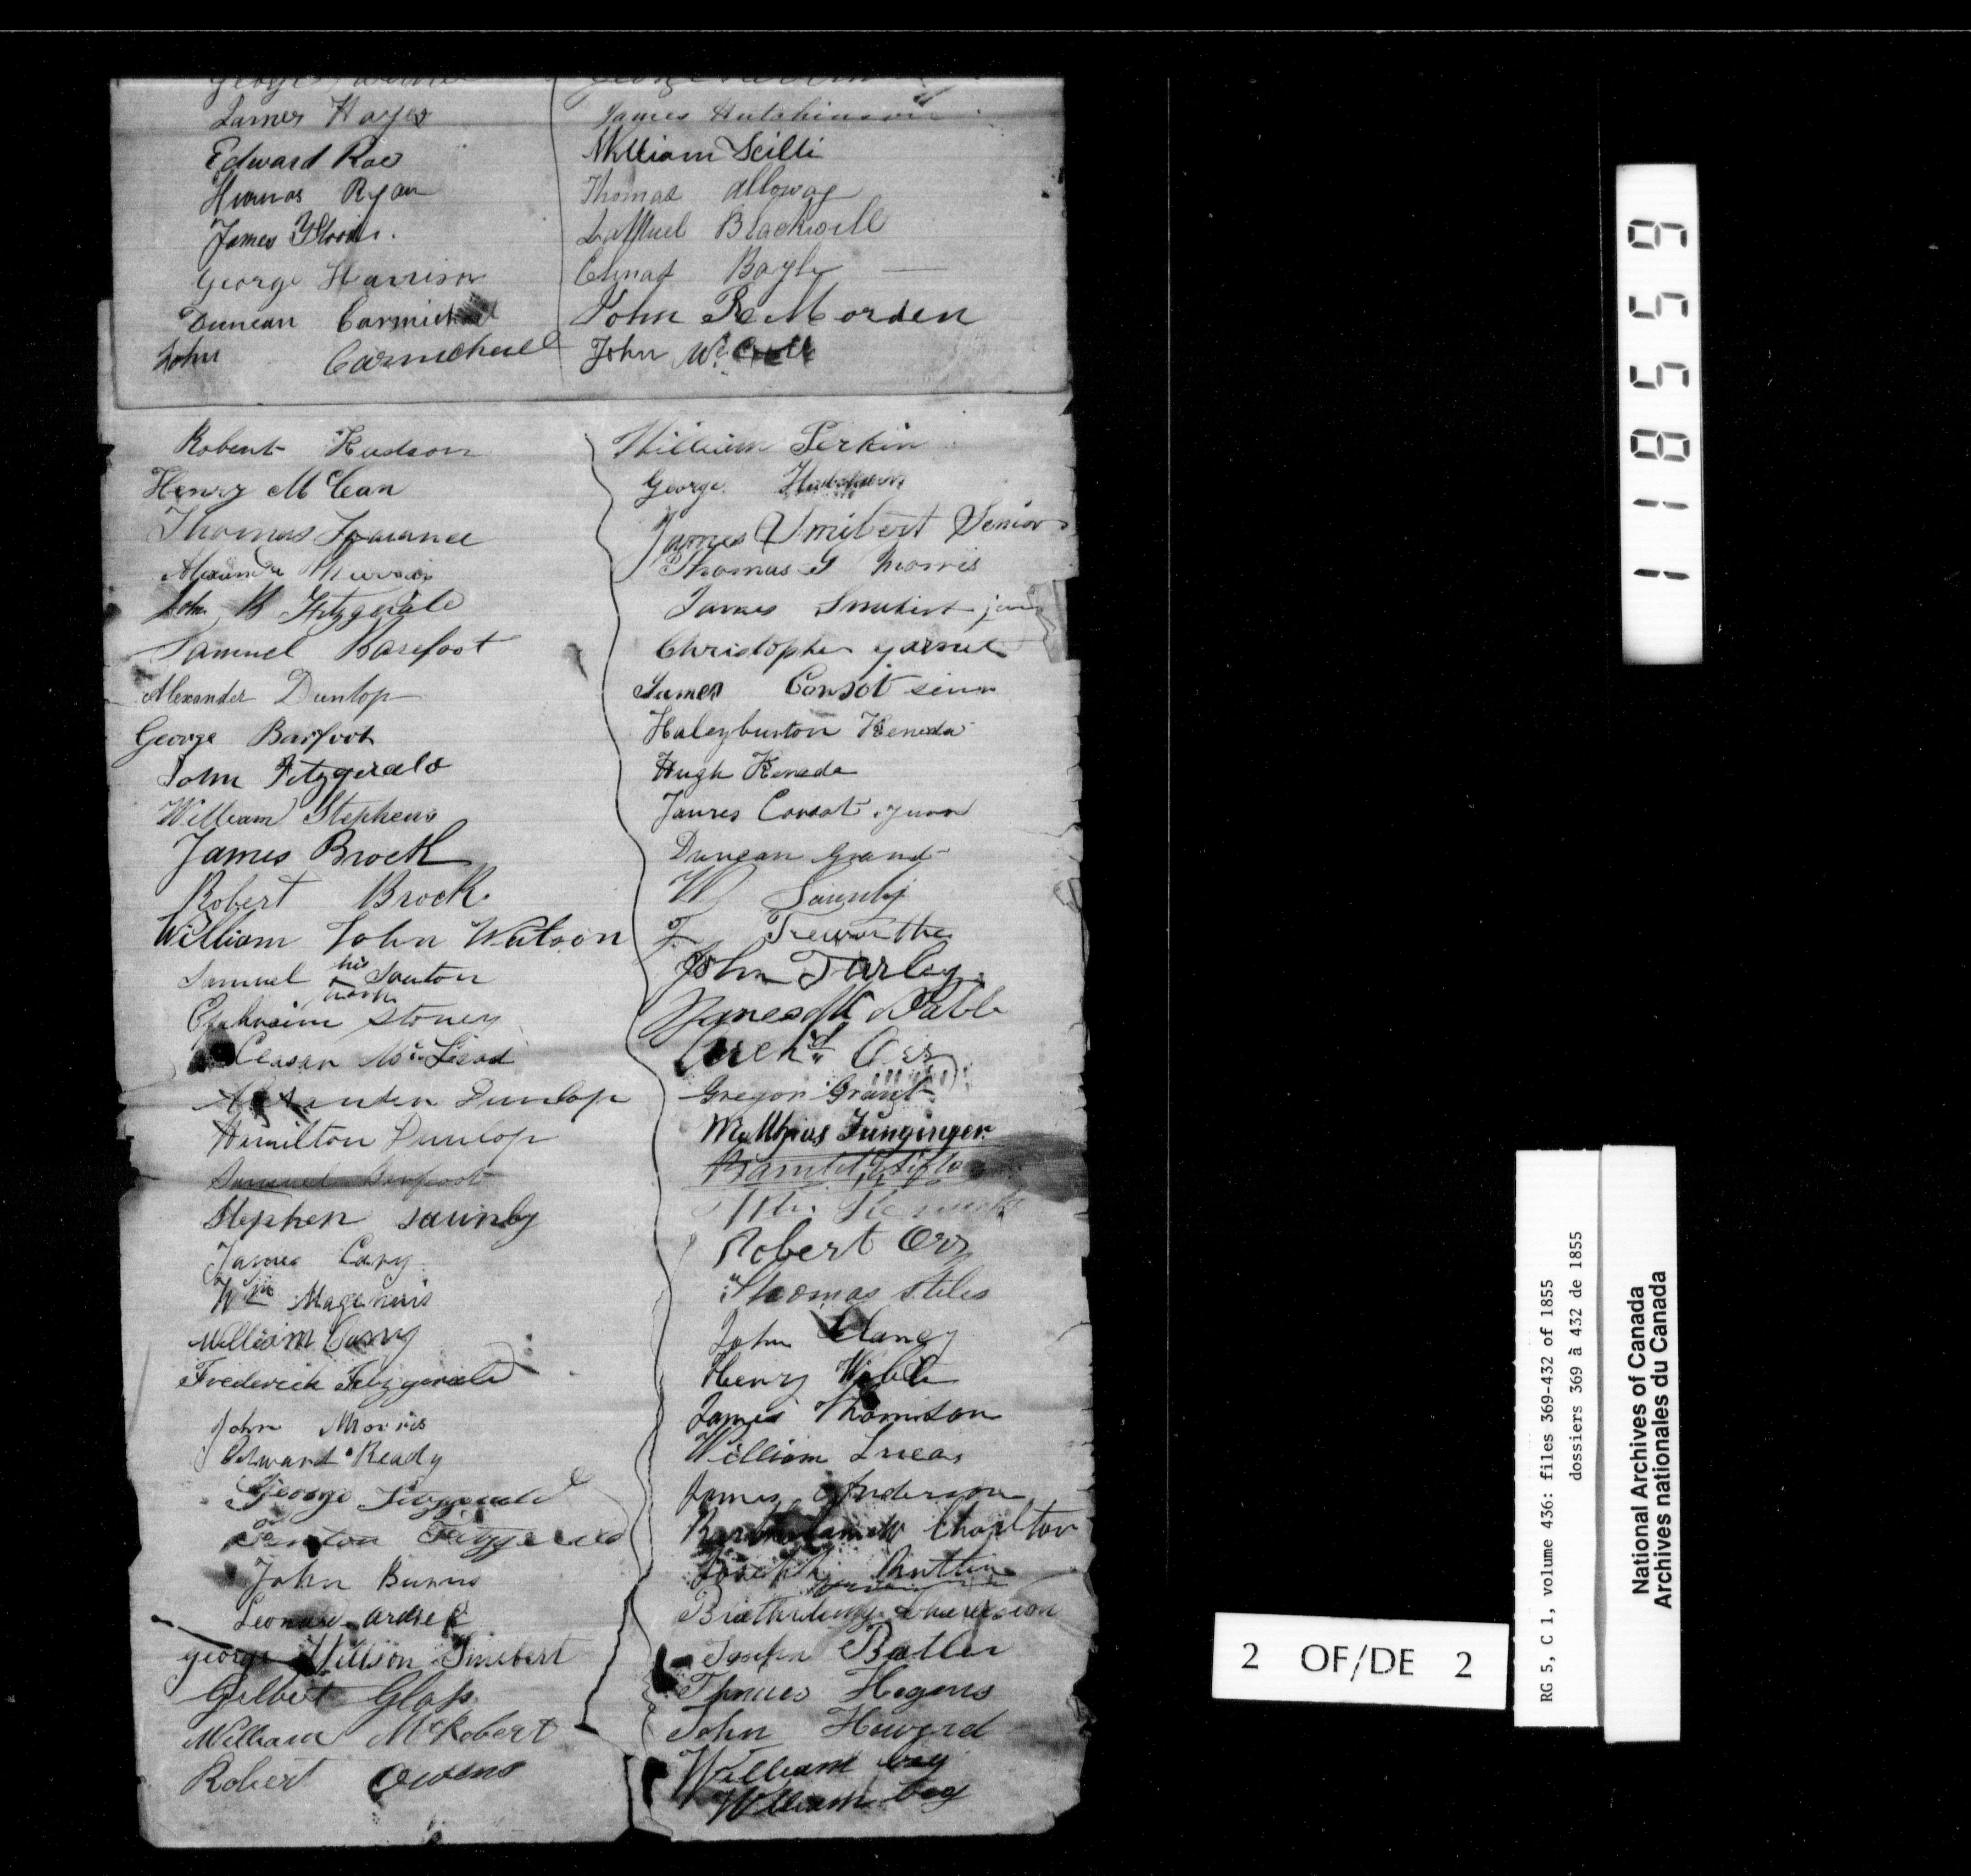 James Hayes
Edward Roe
Ryan
James
George Harrison
Duncan Carmichael
John Carmicheal
James Hutchinson
William Scilli
Thomas Alloway
Blackwell
Bayly
John R Morden
John Mc
Robert Hudson
Henry McCan
Thomas
John Fitzgerald
Samuel Barefoot
Alexander Dunlop
George Barfoot
John Fitzgerald
William Stephens
James Brock
Robert Brock
William John Watson
Samuel his Souton
mark
Ephraim Stoney
Alexander Dunlop
Hamilton Dunlop
Samuel Barfoot
Stephen Saunby
James Cary
Wm Magennis
William Curry
Frederick Fitzgerald
John Morris
Edward Ready
George Fitzgerald
Fitzgerald
John Burns
george Willson Smibert
Gilbert Glass
William McRobert
Robert Owens
William Perkin
George
James Smibert Senior
Thomas G Morris
James Smibert
Christopher garnet
James Consot
Haleyburton Keneda
Hugh Keneda
James Consot
Duncan Grand
W Saunby
T Trewarthe
John Turley
James
Archd Orr
Gregor Grant
Matthias Junginger
Robert Orr
Thomas Stiles
John Clancy
Henry
James Thomison
William Lucas
James Anderson
Bartholamew Charlton
Joseph
Joseph Butler
Hogens
John Howard
William bey
William bey
1118559
2 OF/DE 2
RG 5, C 1, volume 436: files 369-432 of 1855
dossiers 369 à 432 de 1855
National Archives of Canada
Archives nationales du Canada